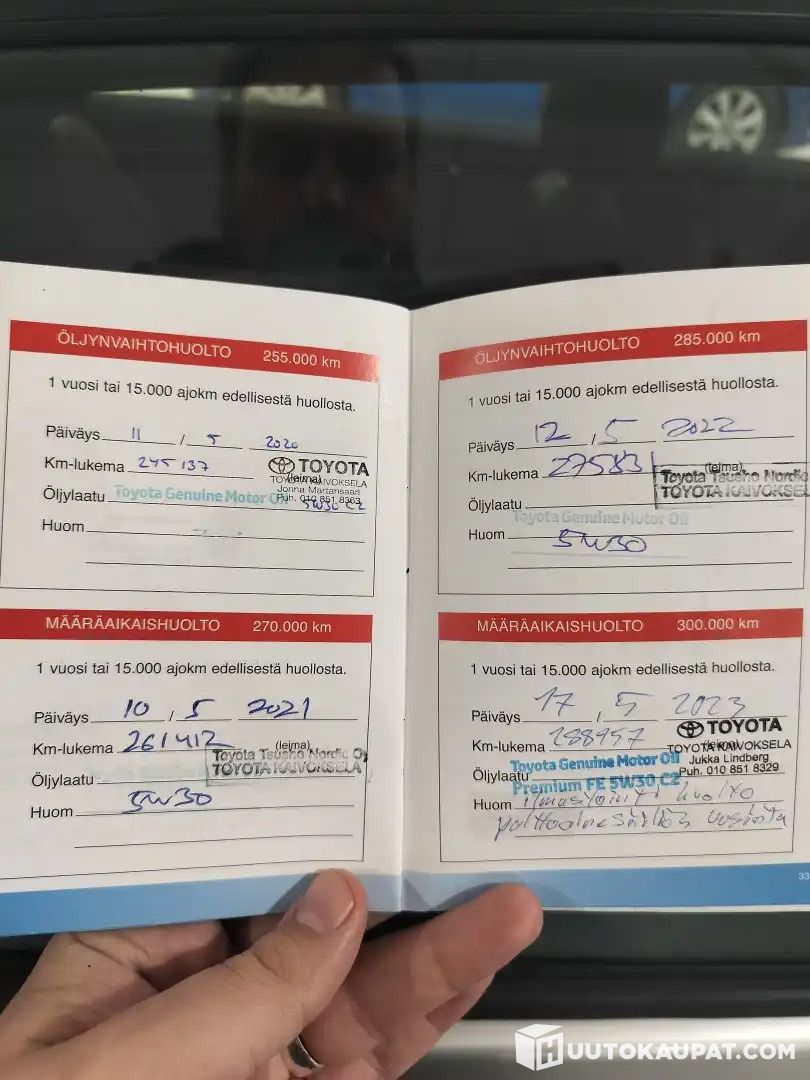 ÖLJYNVAIHTOHUOLTO 255.000 km
1 vuosi tai 15.000 ajokm edellisestä huollosta.
Päiväys 11 / 5 2020
Km-lukema 245 137
TOYOTA
(leima)
TOYOTA KAIVOKSELA
Jonna Martansaari
Puh. 010 851 8363
Öljylaatu Toyota Genuine Motor Oil 5W30 C2
Huom
MÄÄRÄAIKAISHUOLTO 270.000 km
1 vuosi tai 15.000 ajokm edellisestä huollosta.
Päiväys 10 / 5 2021
Km-lukema 261412
(leima)
Toyota Tsusho Nordic Oy
TOYOTA KAIVOKSELA
Öljylaatu
Huom 5W30
ÖLJYNVAIHTOHUOLTO 285.000 km
1 vuosi tai 15.000 ajokm edellisestä huollosta.
Päiväys 12 / 5 2022
Km-lukema 275831
(leima)
Toyota Tsusho Nordic
TOYOTA KAIVOKSEL
Öljylaatu
Toyota Genuine Motor Oil
Huom 5W30
MÄÄRÄAIKAISHUOLTO 300.000 km
1 vuosi tai 15.000 ajokm edellisestä huollosta.
Päiväys 17 / 5 2023
Km-lukema 288997
TOYOTA
(leima)
TOYOTA KAIVOKSELA
Jukka Lindberg
Puh. 010 851 8329
Öljylaatu Toyota Genuine Motor Oil
Premium FE 5W30 C2
Huom ilmastointi huolto
33
HUUTOKAUPAT.COM